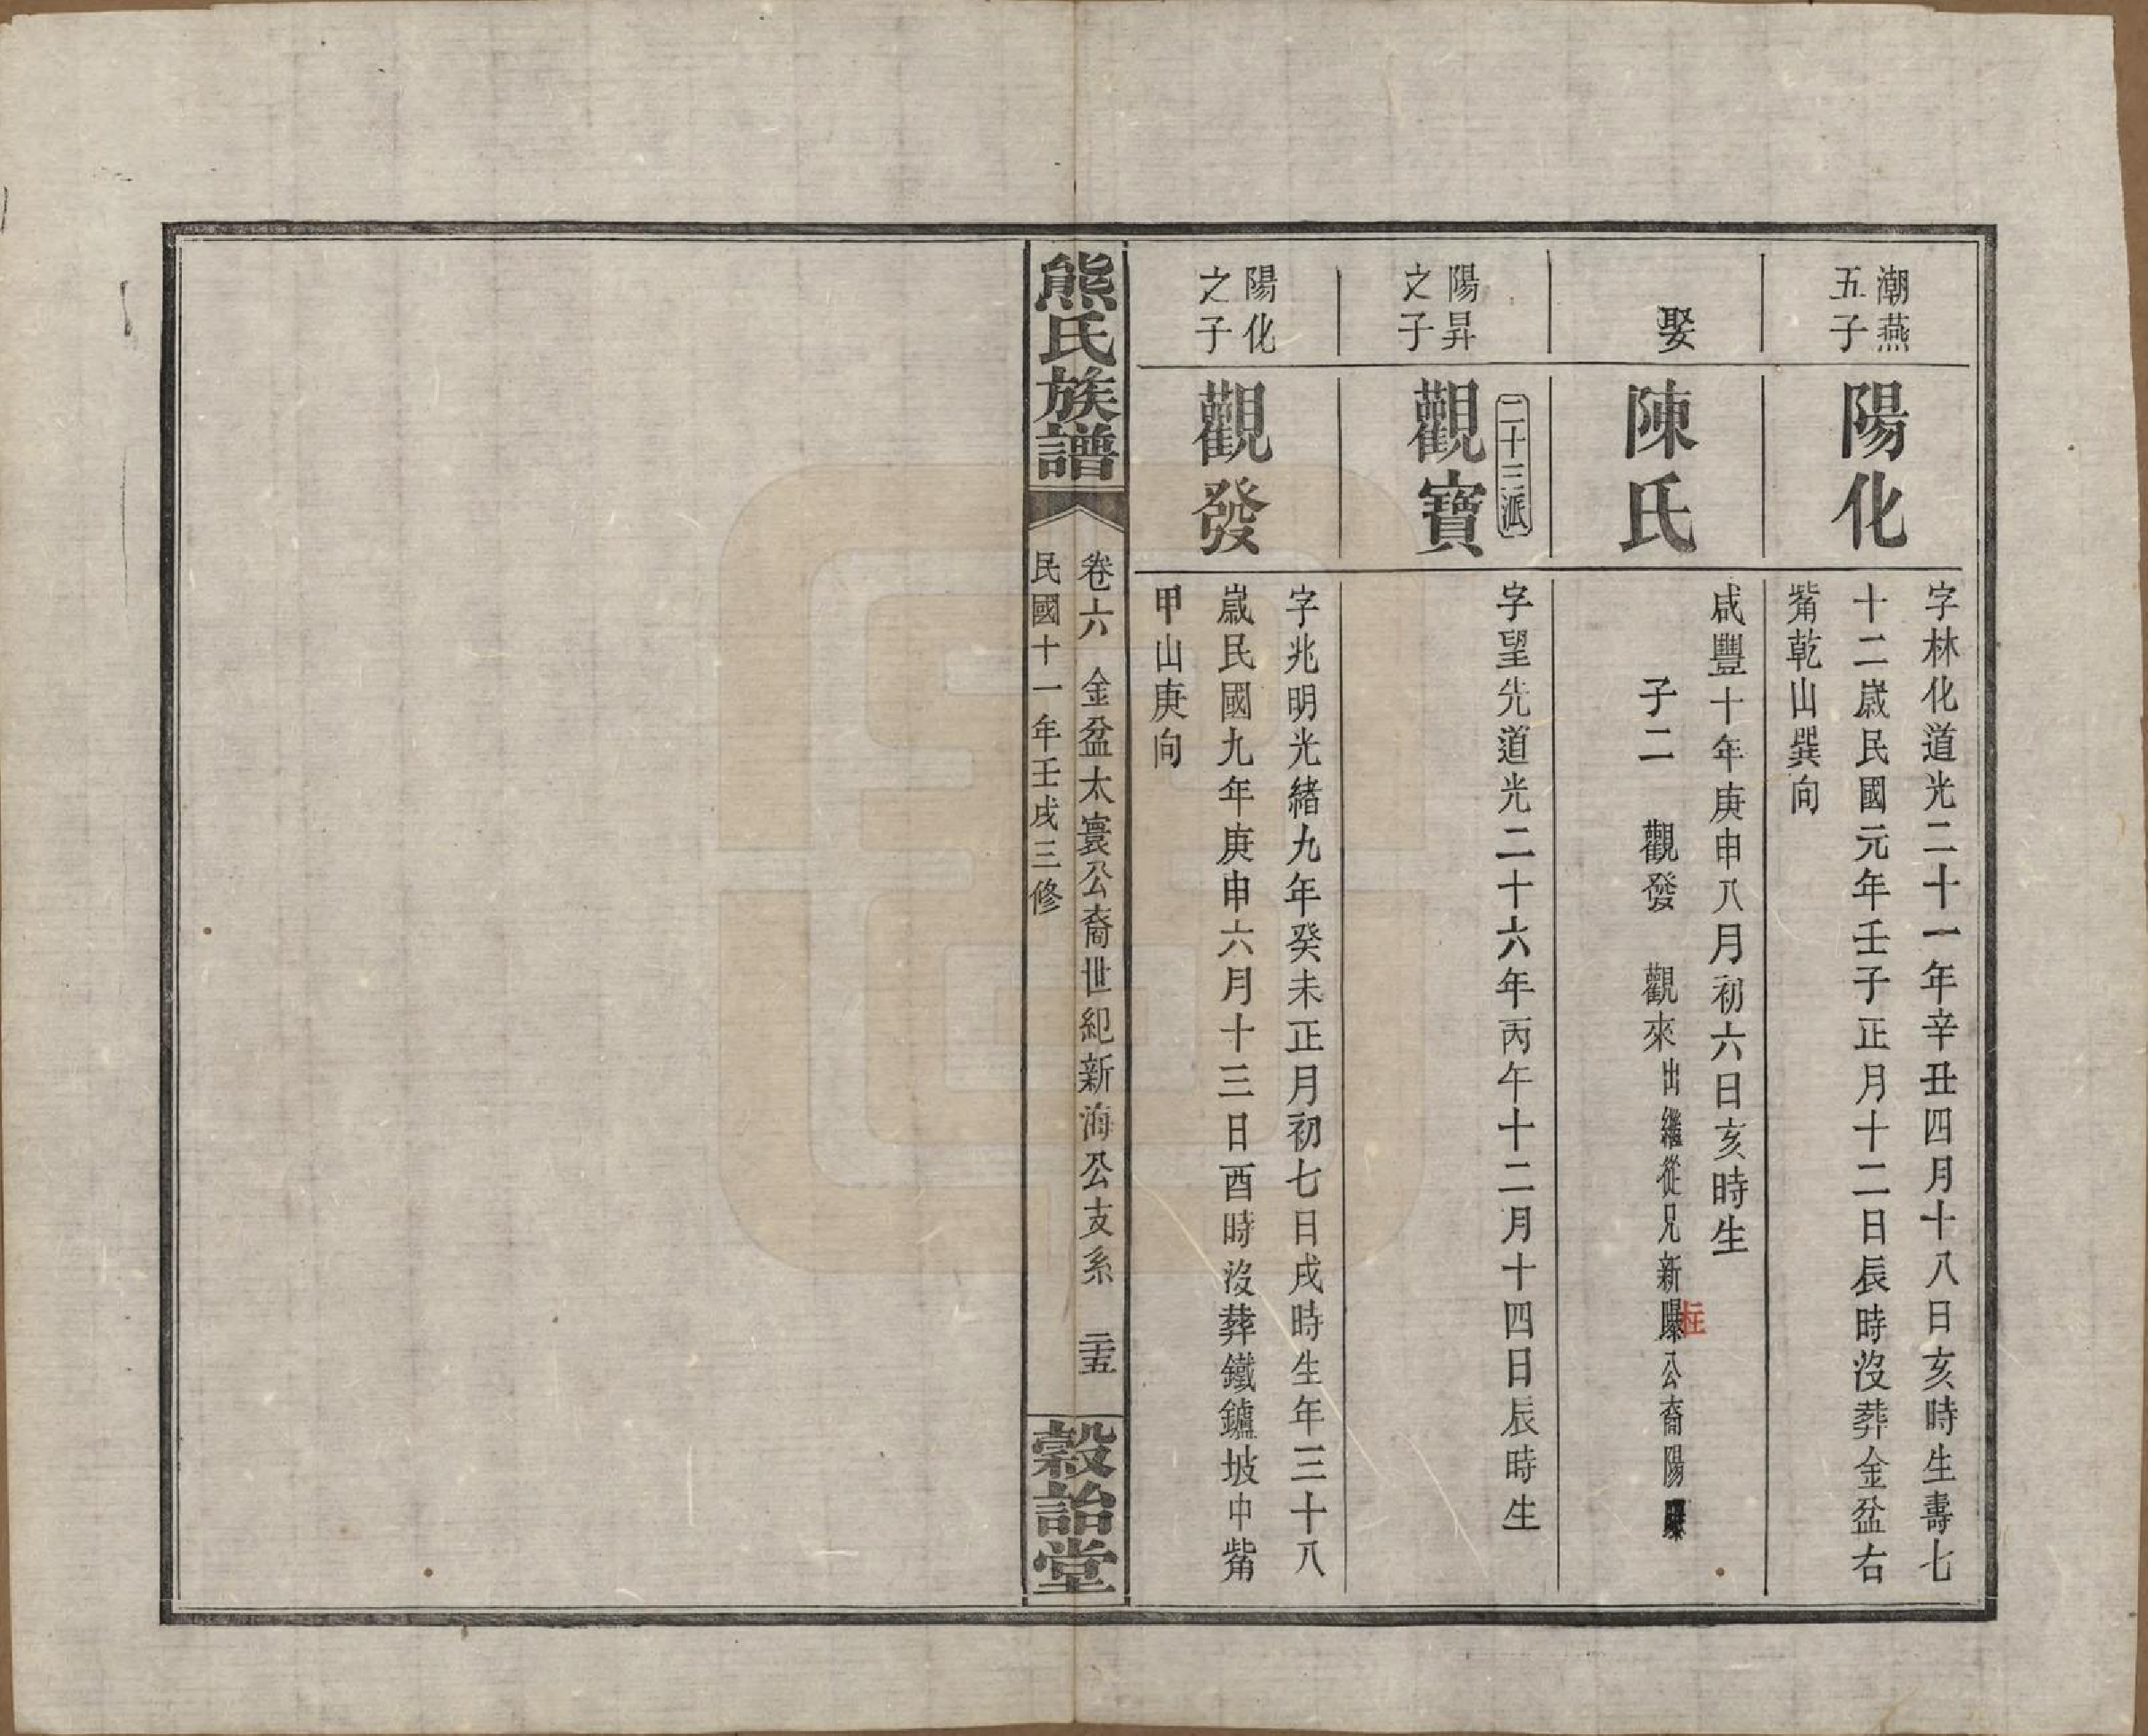 潮燕
五子
陽化
字林化道光二十一年辛丑四月十八日亥時生壽七
十二嵗民國元年壬子正月十二日辰時沒葬金盆右
觜乾山巽向
娶
陳氏
咸豐十年庚申八月初六日亥時生
子二 觀發 觀來出繼從兄新𣋴公裔陽
柱
二十三派
陽昇
之子
觀寶
字望先道光二十六年丙午十二月十四日辰時生
陽化
之子
觀發
字兆明光緒九年癸未正月初七日戌時生年三十八
嵗民國九年庚申六月十三日酉時沒葬鐵鑪坡中觜
甲山庚向
熊氏族譜
卷六 金盆太寰公裔世紀新海公支系 二十五
民國十一年壬戌三修
穀詒堂